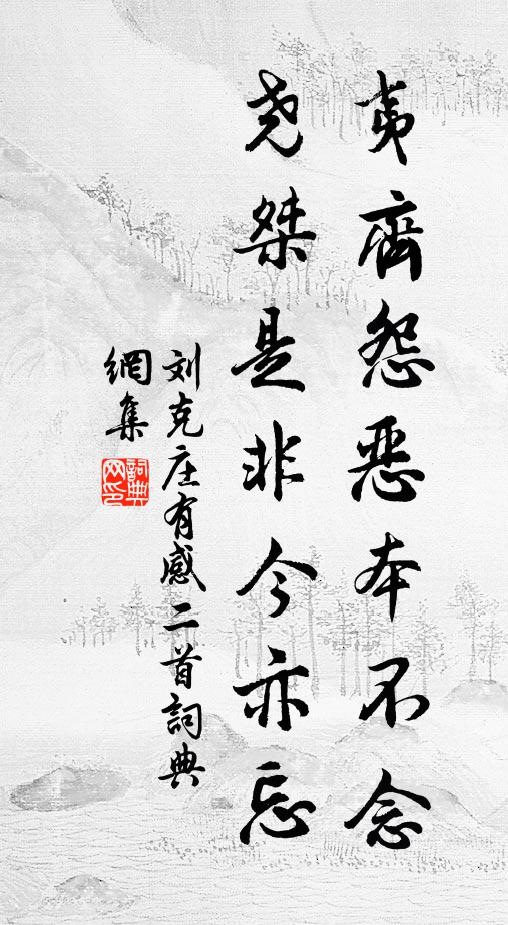 夷齊怨恶本不念
尧桀是非今亦忘
刘克庄有感二首詞典
網集
詞典
网印